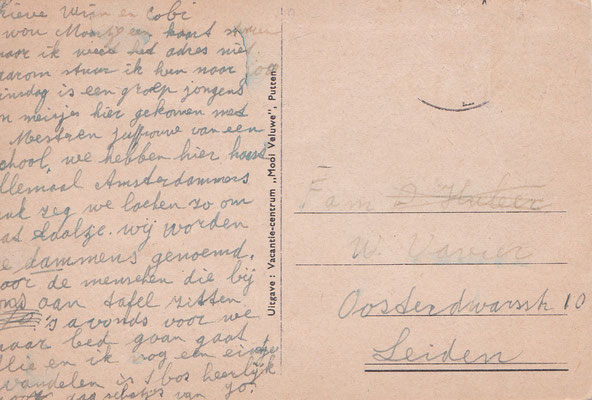 Lieve Wim en Cobi
wou Momtje een kaart sturen
maar ik weet het adres niet
daarom stuur ik hem naar jou
Dinsdag is een groep jongens
en meisjes hier gekomen met
Meester en juffrouw van een
school, we hebben hier haast
allemaal Amsterdammers
zeg we lachen zo om
dat taaltje. wij worden
de dammens genoemd.
door de menschen die bij
ons aan tafel zitten
's avonds voor we
naar bed gaan gaat
en ik nog een eindje
wandelen in 't bos heerlijk
dag schatjes van Jo.
Uitgave: Vacantie-centrum „Mooi Veluwe", Putten
Fam
W.
Oosterdwarsstr 10
Leiden